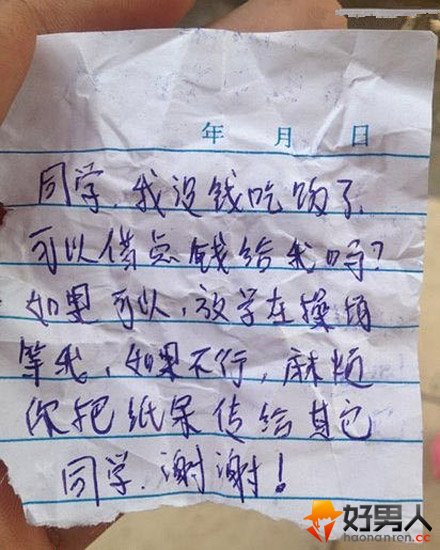 年 月 日
同学，我没钱吃饭了，
可以借点钱给我吗？
如果可以，放学在操场
等我，如果不行，麻烦
你把纸条传给其它
同学，谢谢！
好男人
haonanren.cc